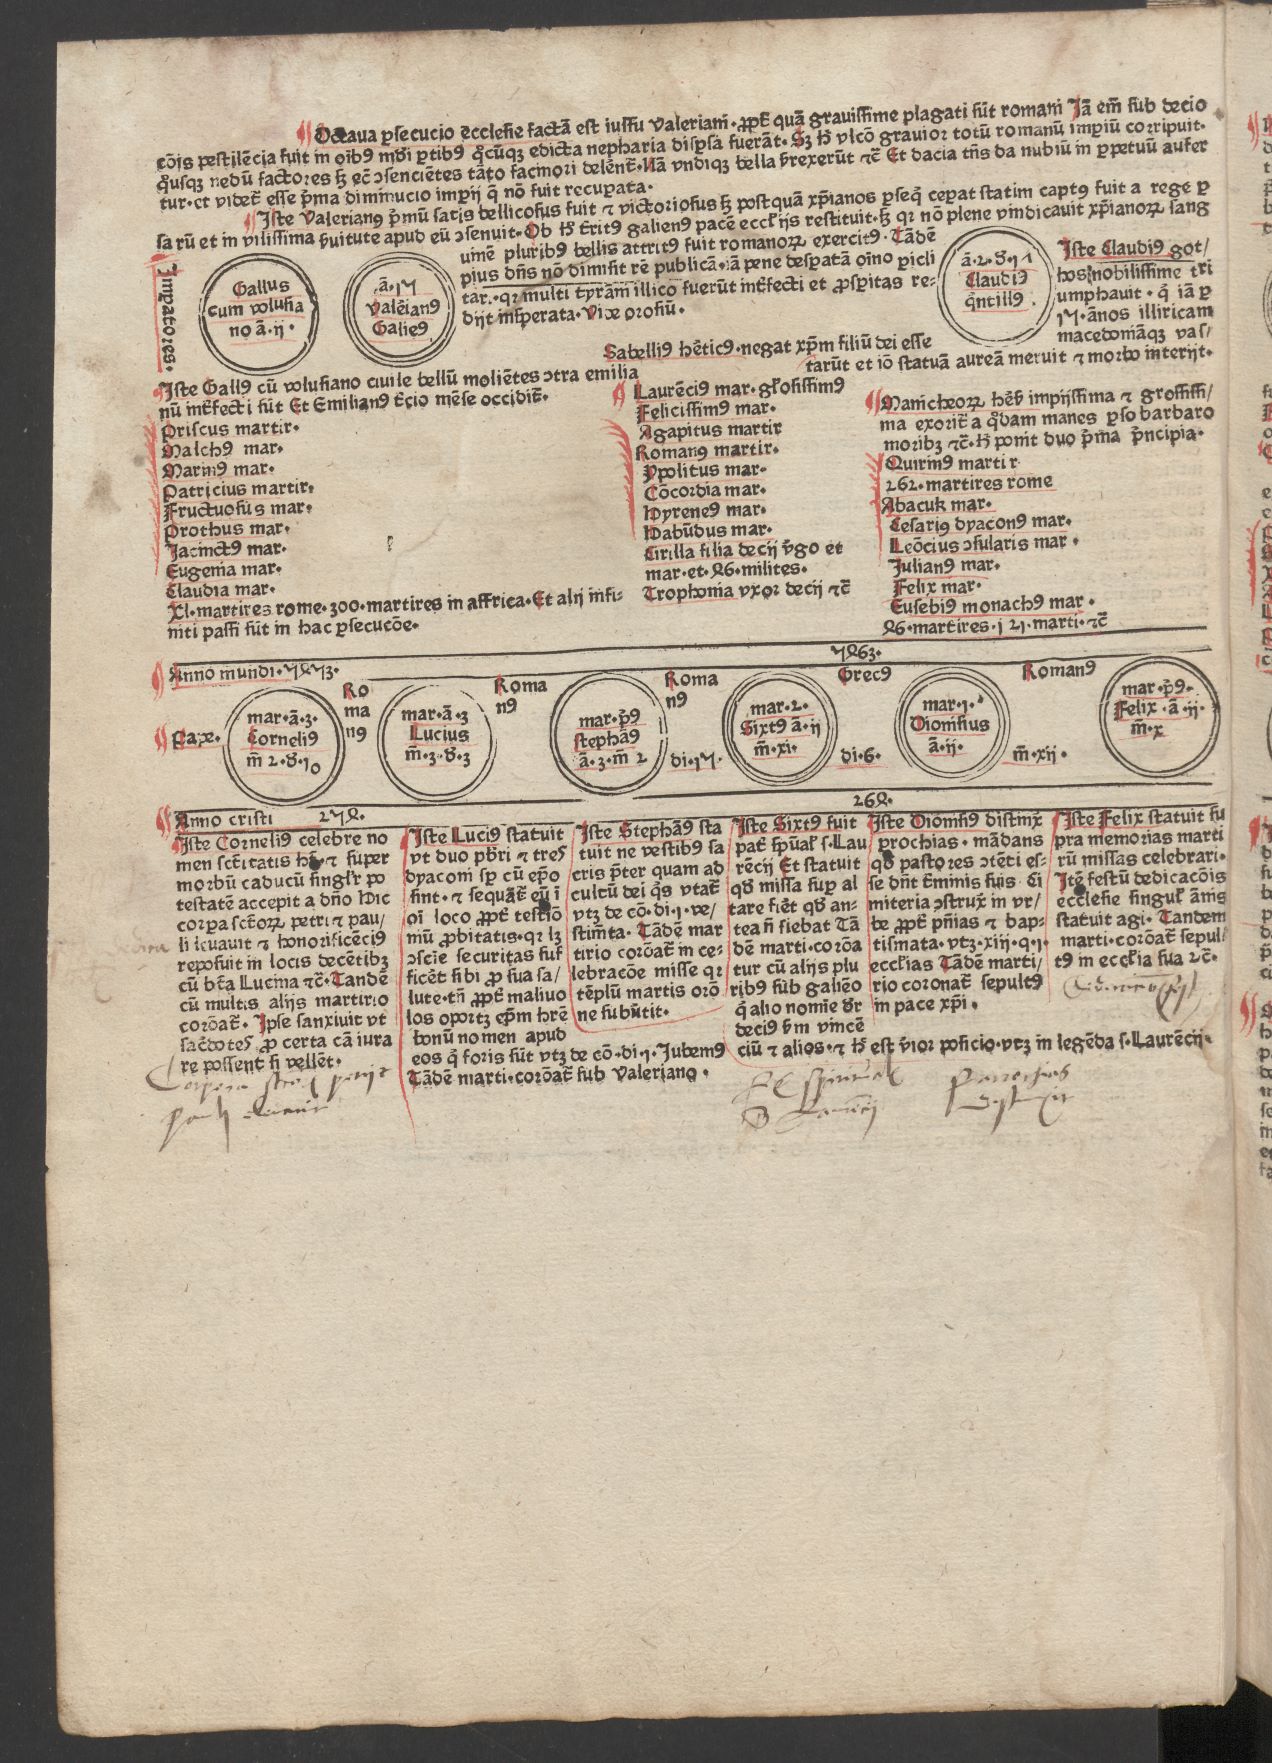 Octaua ꝑsecucio ecclesie factā est iussu valeriani. ꝓpt̄ quā grauissime plagati sūt romani Jā em̄ sub decio
cōis pestilēcia fuit in oibꝰ mūdi ꝑtibꝰ q̄cūqꝫ edicta nepharia disꝑsa fuerāt. Sꝫ hͦ vlcō grauior totū romanū imꝑiū corripuit.
q̄usqꝫ nedū factores sꝫ ec̄ ɔsenciētes tāto facinori delēnt̄. Nā vndiqꝫ bella ꝯrexerūt ⁊c̄ Et dacia tn̄s da nubiū in ꝑpetuū aufer
tur. et videt̄ esse p̄ma diminucio imꝑij q̄ nō fuit recuꝑata.
Iste Valerianꝰ p̄mū satis bellicosus fuit ⁊ victoriosus sꝫ postquā xp̄ianos ꝑseq̄ ceꝑat statim captꝰ fuit a rege ꝑ
sa rū et in vilissima ꝯuitute apud eū ɔsenuit. Ob hͦ t̄ritꝰ galienꝰ pacē eccl̄ijs restituit. sꝫ qꝛ nō plene vindicauit xp̄ianoꝝ sang
umē pluribꝰ bellis attritꝰ fuit romanoꝝ exercitꝰ. Tādē
pius dn̄s nō dimisit rē publicā. iā pene desꝑatā oīno ꝑicli
tar. qꝛ multi tyrāni illico fuerūt int̄fecti et ꝓsꝑitas re-
dijt insꝑerata. Vide orosiū.
Imꝑatores.
Gallus
cum volusia
no ā. ij.
ā. 15
Valeriānꝰ
Galieꝰ
ā. 2. d̄. 14
Claudiꝰ
q̄ntillꝰ
Iste Claudiꝰ got/
hos nobilissime tri
umphauit. q̄ iā ꝑ
15. ānos illiricam
macedoniāqꝫ vas/
tarūt et iō statuā aureā meruit ⁊ morbo interijt.
Sabelliꝰ hēticꝰ. negat xp̄m filiū dei esse
Iste Gallꝰ cū volusiano ciuile bellū moliētes ɔtra emilia
nū int̄fecti sūt Et Emilianꝰ t̄cio mēse occidit̄.
Priscus martir.
Malchꝰ mar.
Marinꝰ mar.
Patricius martir.
Fructuosus mar.
Prothus mar.
Jacinctꝰ mar.
Eugenia mar.
Claudia mar.
Xl. martires rome. 300. martires in affrica. Et alij infi-
niti passi sūt in hac ꝑsecucōe.
Laurēciꝰ mar. gl̄osissimꝰ
Felicissimꝰ mar.
Agapitus martir
Romanꝰ martir.
Ypolitus mar.
Cōcordia mar.
Hyreneꝰ mar.
Habūdus mar.
Cirilla filia decij v̄go et
mar. et. 46. milites.
Trophonia vxor decij ⁊c̄
Manicheoꝝ hēs̄ impijssima ⁊ grossissi/
ma exorit̄ a q̄dam manes ꝑso barbaro
moribꝫ ⁊c̄. hͦ ponit duo p̄ma p̄ncipia.
Quirinꝰ martir
262. martires rome
Abacuk mar.
Cesariꝰ dyaconꝰ mar.
Leōcius ɔsularis mar.
Julianꝰ mar.
Felix mar.
Eusebiꝰ monachꝰ mar.
46. martires. 121. marti. ⁊c̄
Anno mundi. 5453.
5463.
Pape.
mar. ā. 3.
Corneliꝰ
m̄ 2. d̄. 10
Ro
ma
nꝰ
mar. ā. 3
Lucius
m̄. 3. d̄. 3
Roma
nꝰ
mar. p̄ꝰ
stephāꝰ
ā. 3. m̄ 2
Roma
nꝰ
di. 15.
mar. 2.
Sixtꝰ ā. ij
m̄. xi.
Grecꝰ
di. 6.
mar. 1.
Dionisius
ā. ij.
Romanꝰ
m̄. xij.
mar. p̄ꝰ.
Felix. ā. ij.
m̄. x
Anno cristi 254.
264.
Iste Corneliꝰ celebre no
men sct̄itatis ⁊ super
morbū caducū singlr̄ po
testatē accepit a dn̄o Hic
corpa sct̄oꝝ petri ⁊ pau/
li leuauit ⁊ honorificēciꝰ
reposuit in locis decētibꝫ
cū bt̄a Lucina ⁊c̄. Tandē
cū multis alijs martirio
corōat̄. Ipse sanxiuit vt
sac̄dotes ꝓ certa cā iura
re possent si vellēt.
Iste Luciꝰ statuit
vt duo pb̄ri ⁊ tres
dyaconi sp̄ cū ep̄o
sint. ⁊ sequāt̄ eū ī
oī loco ꝓpt̄ testiō
niū ꝓbitatis. qꝛ lꝫ
ɔscīe securitas suf
ficēt sibi ꝓ sua sa/
lute. tn̄ ꝓpt̄ maliuo
los oportꝫ ep̄m hr̄e
bonū nomen apud
eos q̄ foris sūt vtꝫ de cō. di. 1. Jubemꝰ
Tādē marti. corōat̄ sub valeriano.
Iste Stephāꝰ sta
tuit ne vestibꝰ sa
cris p̄ter quam ad
cultū dei q̄s vtat̄
vtꝫ de cō. di. 1. ve/
stim̄ta. Tādē mar
tirio corōat̄ in ce-
lebracōe misse qꝛ
tēplū martis orō
ne subūtit.
Iste Sixtꝰ fuit
pat̄ sp̄ual̄ s. Lau
rēcij Et statuit
qd̄ missa suꝑ al
tare fiēt qd̄ an-
tea n̄ fiebat Tā
dē marti. corōa
tur cū alijs plu
ribꝰ sub galiēo
q̄ alio nomīe dr̄
deciꝰ s̄m vincē
ciū ⁊ alios. ⁊ hͦ est v̄ior posicio. vtꝫ in legēda s. Laurēcij.
Iste Dionisiꝰ distinx̄
ꝑrochias. mādans
qd̄ pastores ɔtēti es-
se dn̄t t̄minis suis. Ci
miteria ɔstrux̄ in vr/
be ꝓpt̄ pn̄ias ⁊ bap-
tismata. vtꝫ. xiij. q. 1.
eccl̄ias Tādē marti/
rio coronat̄ sepultꝰ
in pace xp̄i.
Iste Felix statuit su
pra memorias marti
rū missas celebrari.
Itē festū dedicacōis
ecclesie singul̄ ānis
statuit agi. Tandem
marti. corōat̄ sepul/
tꝰ in eccl̄ia sua ⁊c̄.